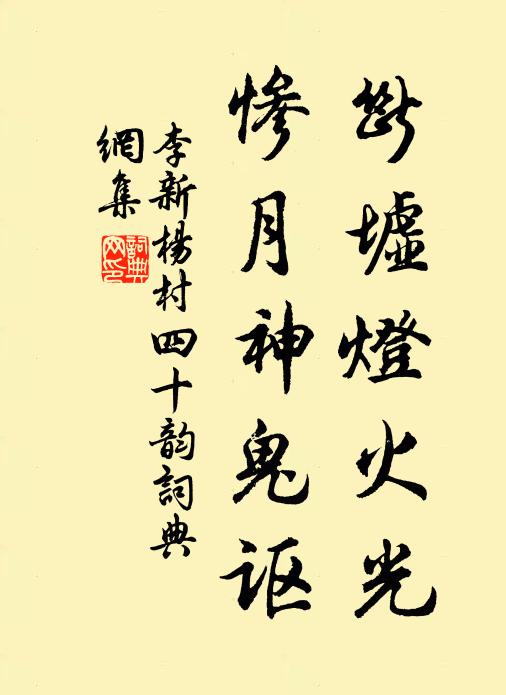 断墟燈火光
惨月神鬼讴
李新楊村四十韵詞典
網集
詞典
网印